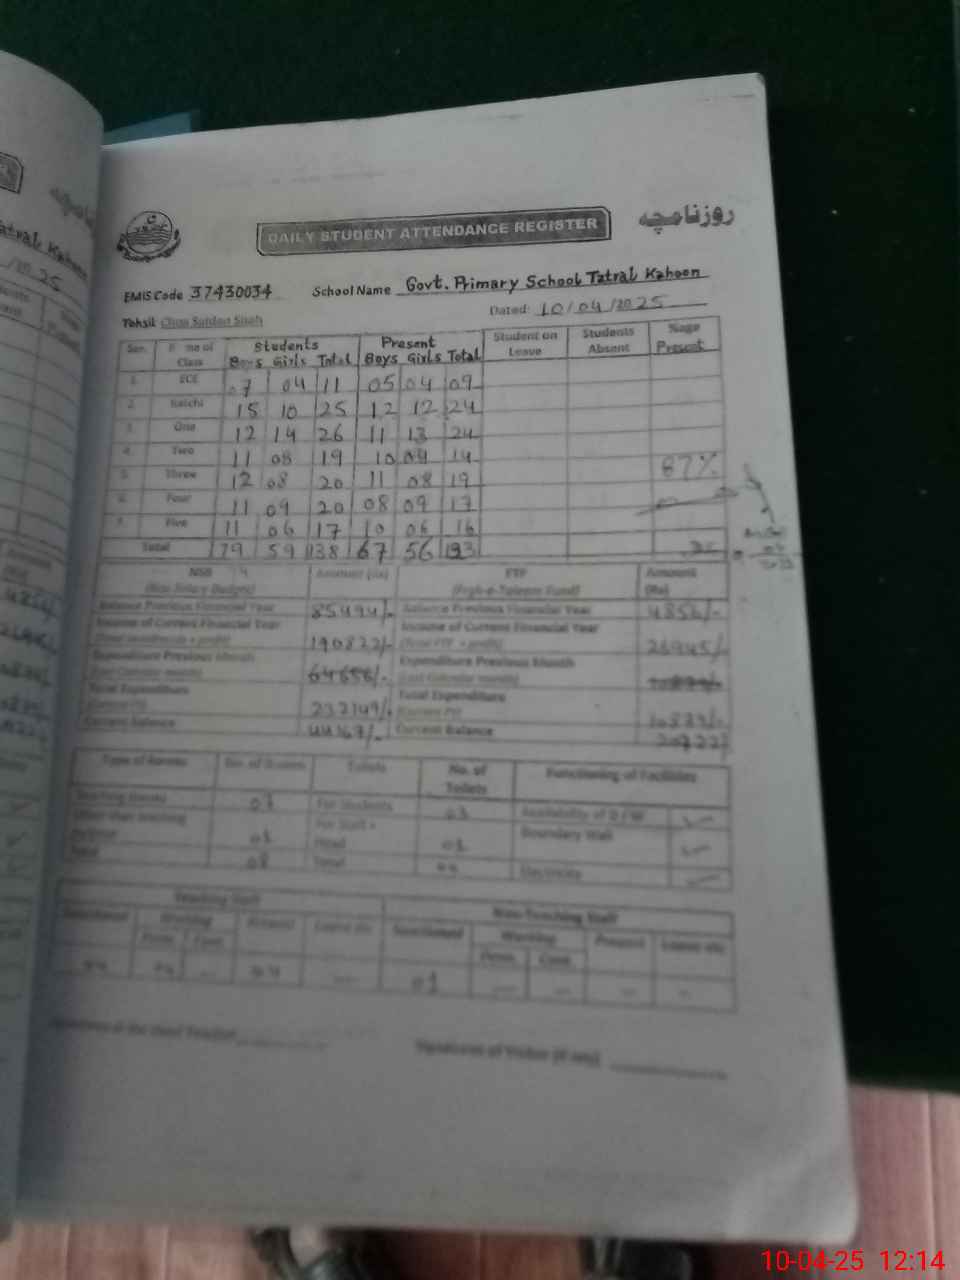 روزنامچہ
DAILY STUDENT ATTENDANCE REGISTER
EMIS Code 37430034 School Name Govt. Primary School Tatral Kahoon
Tehsil Choa Saidan Shah Dated: 10/04/2025
Ser. Name of Class Students Boys Girls Total Present Boys Girls Total Student on Leave Students Absent %age Present
1. ECE 07 04 11 05 04 09
2. Katchi 15 10 25 12 12 24
3. One 12 14 26 11 13 24
4. Two 11 08 19 10 04 14
5. Three 12 08 20 11 08 19 87%
6. Four 11 09 20 08 09 17
7. Five 11 06 17 10 06 16
Total 79 59 138 67 56 123
NSB Amount (Rs) FTF Amount (Rs)
(Non Salary Budget) (Frogh-e-Taleem Fund)
Balance Previous Financial Year 85494/- Balance Previous Financial Year 4856/-
Income of Current Financial Year 190822/- Income of Current Financial Year 26945/-
Expenditure Previous Month 64656/- Expenditure Previous Month
(Last Calendar month) (Last Calendar month)
Total Expenditure 232149/- Total Expenditure
(Current FY) (Current FY)
Current Balance 44167/- Current Balance
Type of Rooms No. of Rooms Toilets No. of Toilets Functioning of Facilities
Teaching Rooms 07 For Students 03 Availability of D/W ✓
Other than teaching 01 For Staff + Head 01 Boundary Wall ✓
Total 08 Total Electricity ✓
Teaching Staff Non-Teaching Staff
Sanctioned Working Present Leave etc Sanctioned Working Present Leave etc
Perm. Cont. Perm. Cont.
04 01
Signature of the Head Teacher Signature of Visitor (if any)
10-04-25 12:14